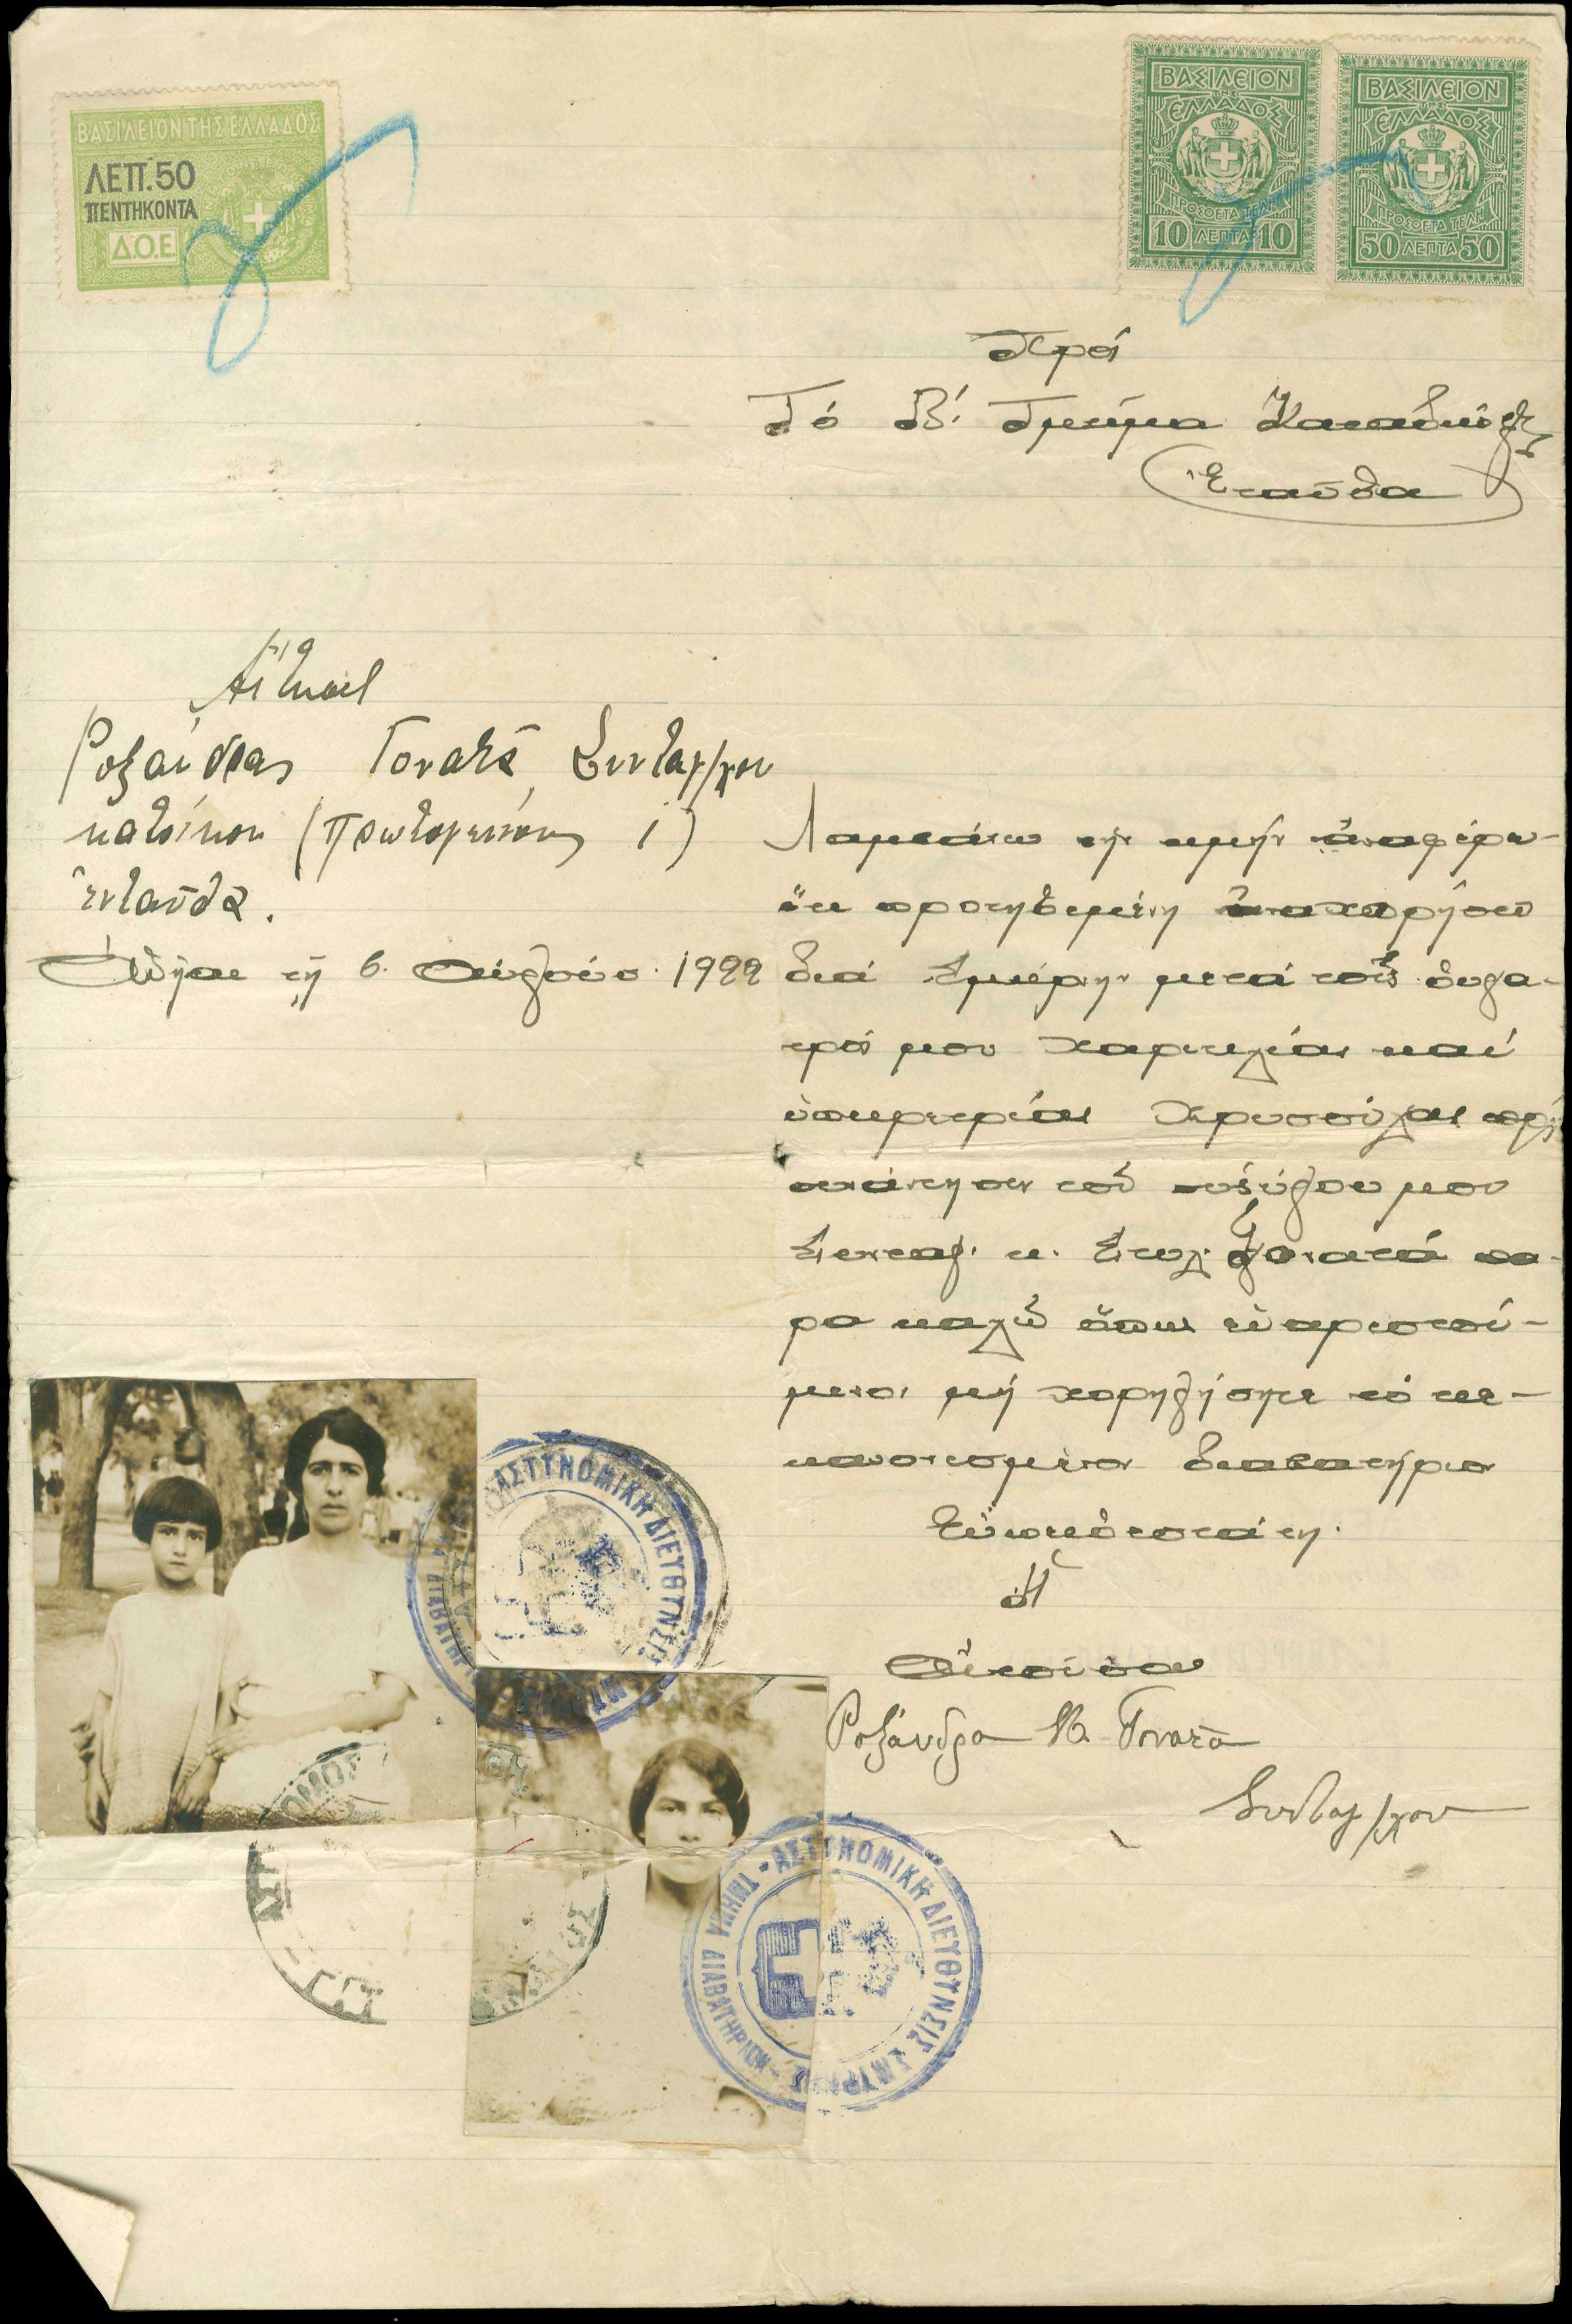 ΒΑΣΙΛΕΙΟΝ ΤΗΣ ΕΛΛΑΔΟΣ
ΛΕΠ. 50
ΠΕΝΤΗΚΟΝΤΑ
Δ.Ο.Ε
ΒΑΣΙΛΕΙΟΝ
ΤΗΣ
ΕΛΛΑΔΟΣ
ΠΡΟΣΘΕΤΑ ΤΕΛΗ
10 ΛΕΠΤΑ 10
ΒΑΣΙΛΕΙΟΝ
ΤΗΣ
ΕΛΛΑΔΟΣ
ΠΡΟΣΘΕΤΑ ΤΕΛΗ
50 ΛΕΠΤΑ 50
Πρός
Τό Β! Τμήμα Καταδιώξεως
Ἐνταῦθα
Αἴτησις
Ρωξάνδρας Γονατᾶ Συνταγ/χου
κατοίκου (Πρωτογενους 1)
ἐνταῦθα.
Ἀθῆναι τῇ 6. Αὐγούσ. 1922
Λαμβάνω τήν τιμήν ἀναφέρω
ὅτι προτιθεμένη ἀναχωρήσω
διά Σμύρνην μετά τῆς θυγα-
τρός μου Χαρικλείας καί
ὑπηρετρίας Χρυσούλας πρός
συνάντησιν τοῦ συζύγου μου
Συνταγ. κ. Στυλ. Γονατά πα-
ρακαλῶ ὅπως εὐαρεστού-
μενοι μοί χορηγήσητε τό κε-
κανονισμένον διαβατήριον
Εὐπειθεστάτη.
Ἡ
Αἰτοῦσα
Ρωξάνδρα Γονατᾶ
Συνταγ/χου
ΑΣΤΥΝΟΜΙΚΗ ΔΙΕΥΘΥΝΣΙΣ ΣΜΥΡΝΗΣ
ΔΙΑΒΑΤΗΡΙΩΝ
ΑΣΤΥΝΟΜΙΚΗ ΔΙΕΥΘΥΝΣΙΣ ΣΜΥΡΝΗΣ - ΤΜΗΜΑ ΔΙΑΒΑΤΗΡΙΩΝ